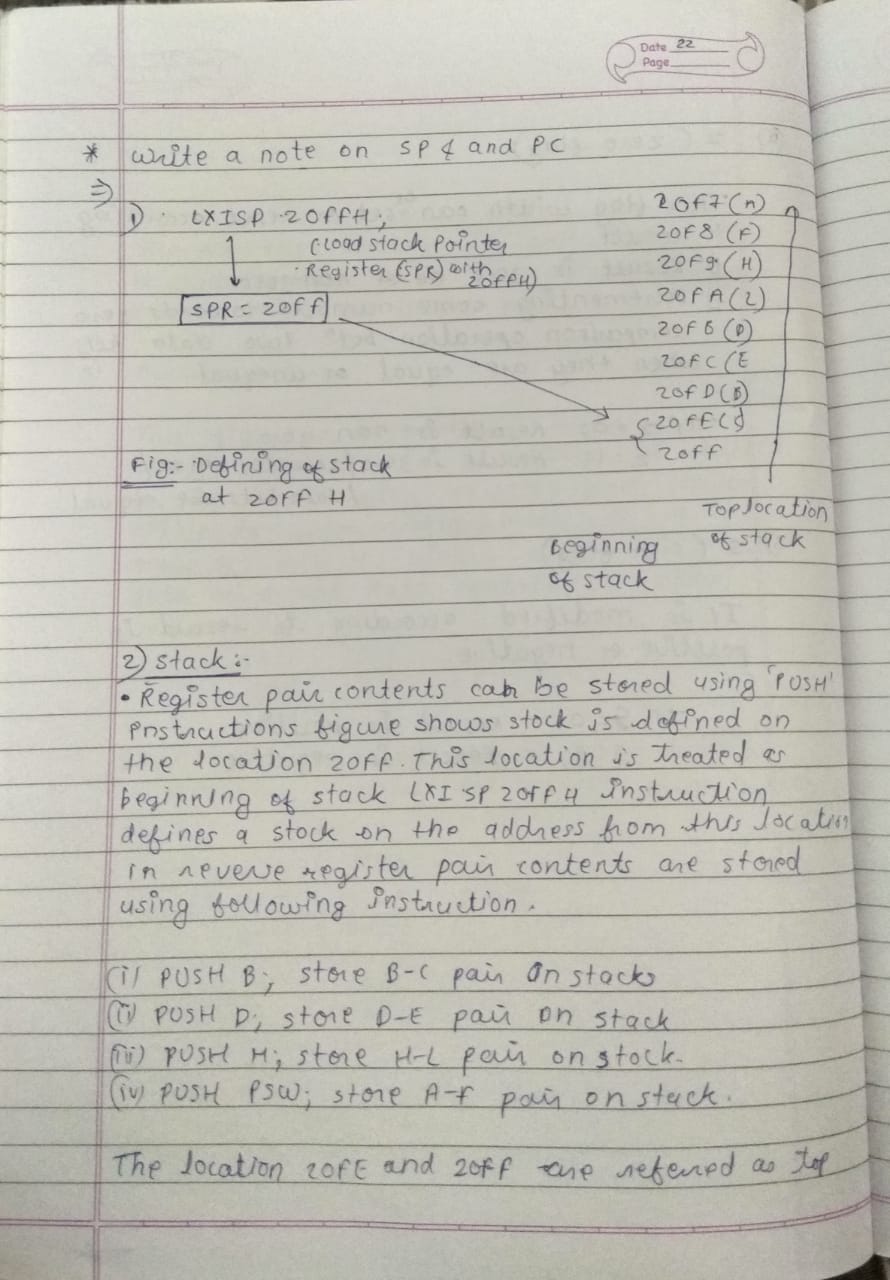 Date 22
Page
* Write a note on SP & and PC
⇒
1) LXISP 20FFH;
(Load stack Pointer
Register (SPR) with
20FFH)
SPR = 20FF
20F7(A)
20F8 (F)
20F9 (H)
20FA (L)
20FB (D)
20FC (E
20FD (B)
20FE (
20FF
Fig:- Defining of stack
at 20FF H
Top location
of stack
Beginning
of stack
2) Stack :-
• Register pair contents can be stored using 'PUSH'
instructions figure shows stack is defined on
the location 20FF. This location is treated as
beginning of stack LXI SP 20FFH instruction
defines a stack on the address from this location
in reverse register pair contents are stored
using following instruction.
(i) PUSH B; store B-C pair on stack
(ii) PUSH D; store D-E pair on stack
(iii) PUSH H; store H-L pair on stock.
(iv) PUSH PSW; store A-F pair on stack.
The location 20FE and 20FF are referred as top